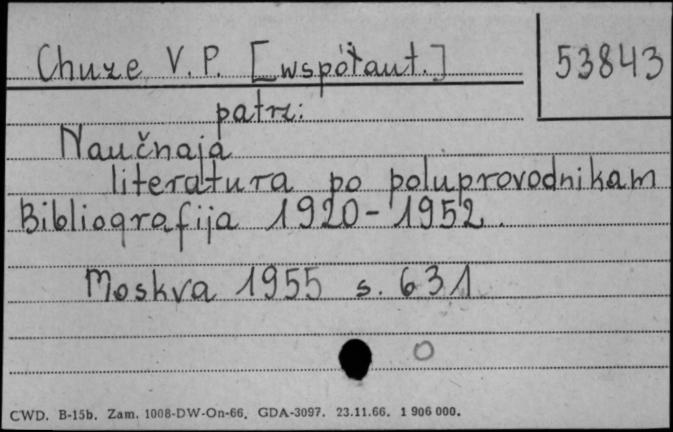 Chuze V. P. [współaut.]
53843
patrz:
Naučnaja
literatura po poluprovodnikam
Bibliografija 1920-1952.
Moskva 1955 s. 631
CWD. B-15b. Zam. 1008-DW-On-66. GDA-3097. 23.11.66. 1 906 000.